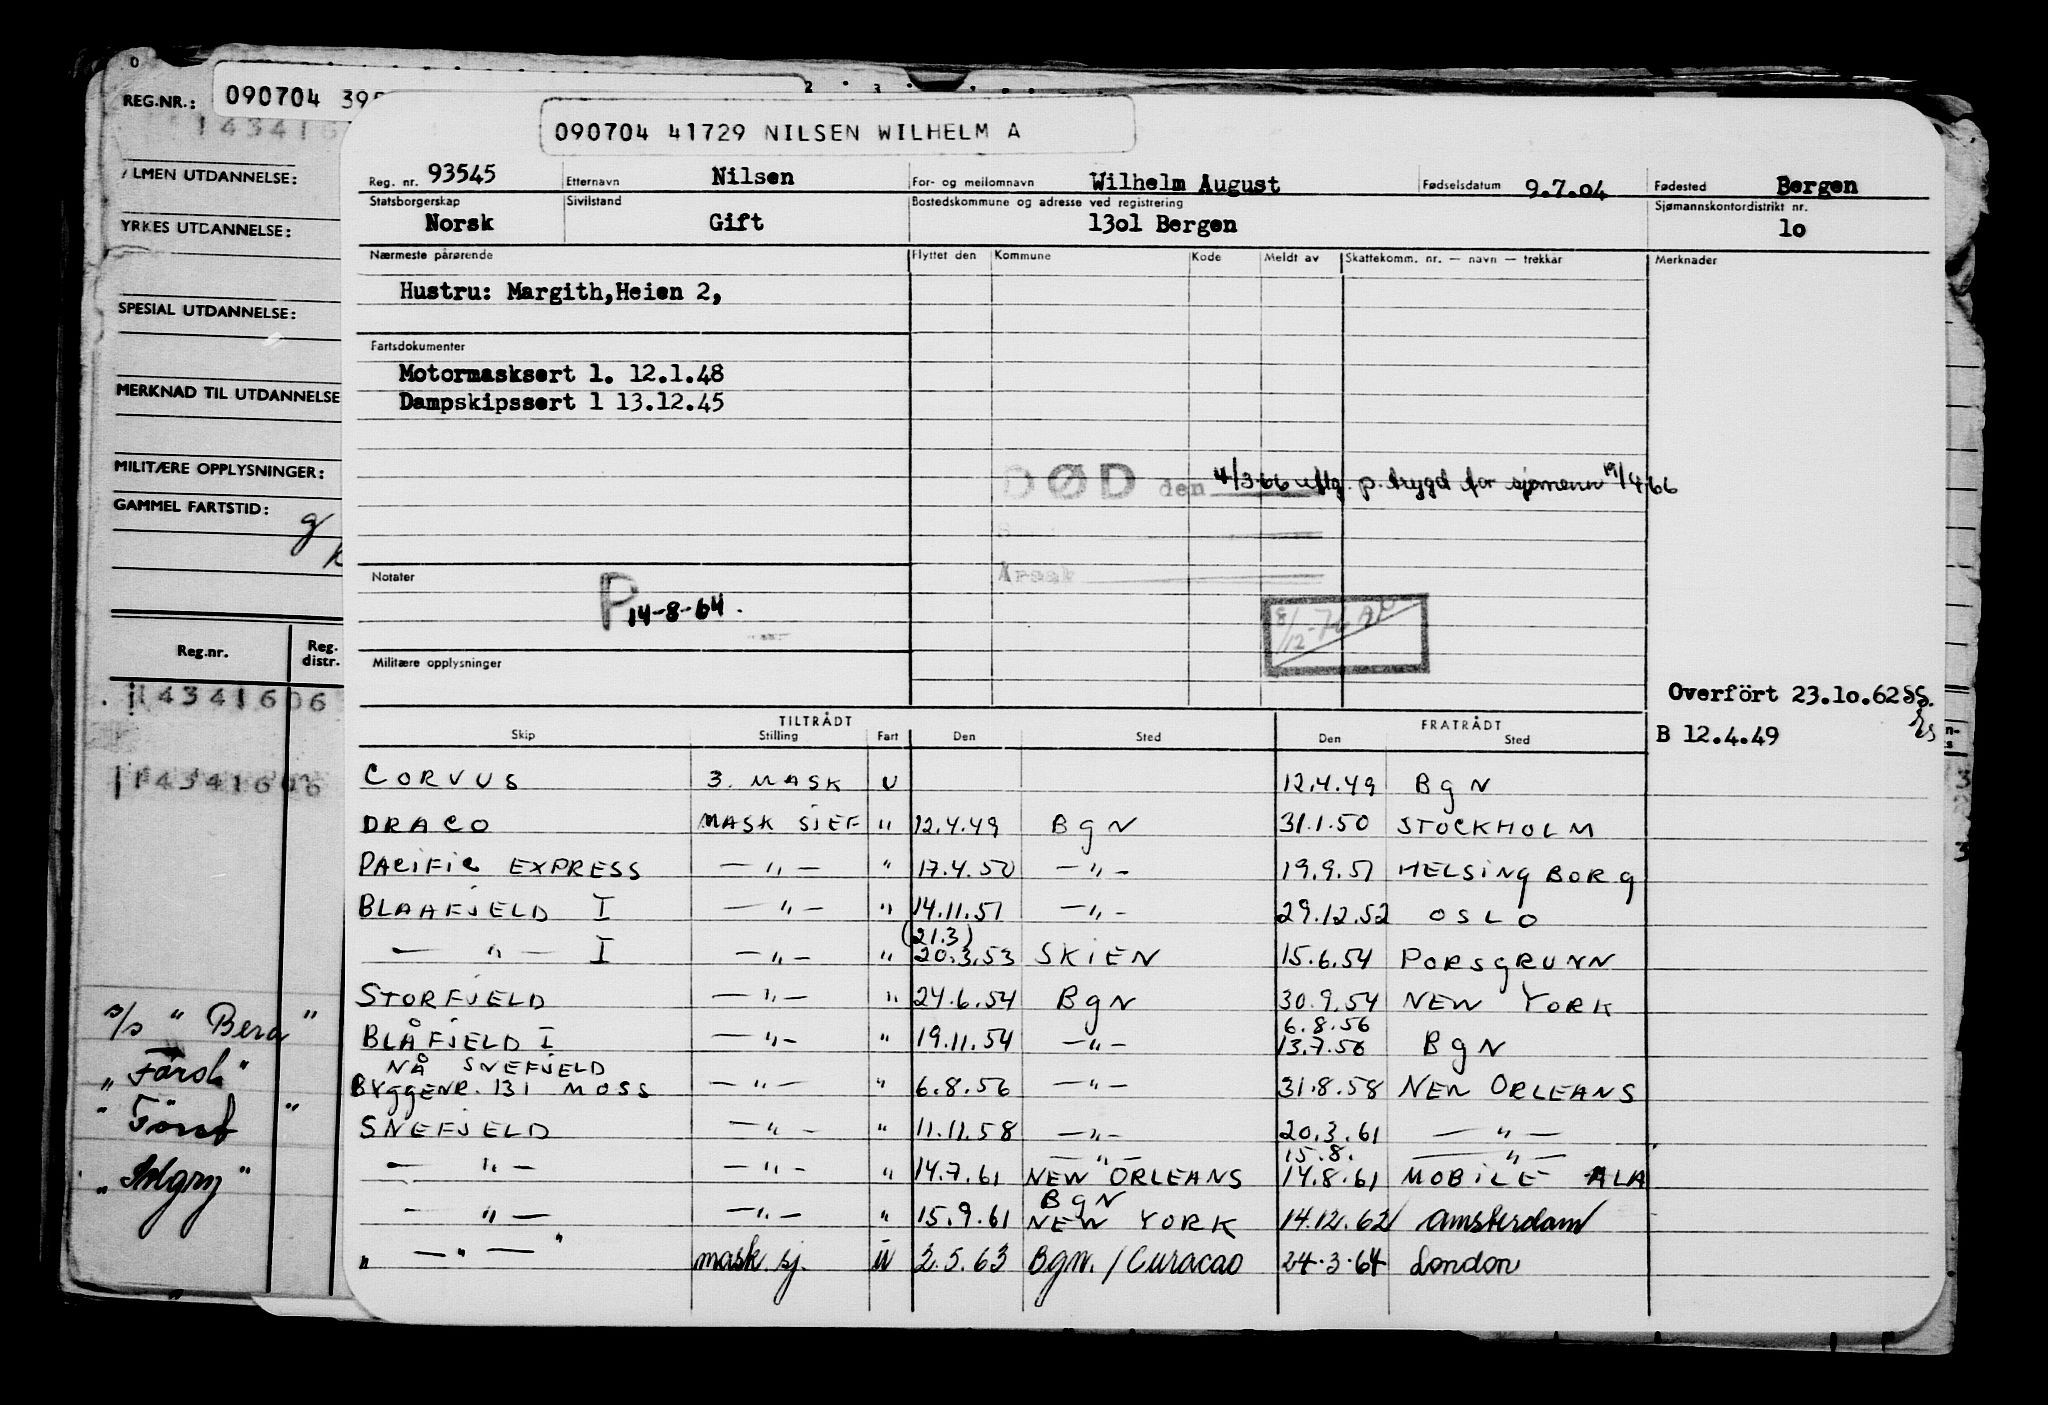 REG.NR.: 090704 395
143416
090704 41729 NILSEN WILHELM A
Reg. nr. 93545 Etternavn Nilsen For- og mellomnavn Wilhelm August Fødselsdatum 9.7.04 Fødested Bergen
Statsborgerskap Norsk Sivilstand Gift Bostedskommune og adresse ved registrering 13o1 Bergen Sjømannskontordistrikt nr. 1o
LMEN UTDANNELSE:
YRKES UTDANNELSE:
SPESIAL UTDANNELSE:
MERKNAD TIL UTDANNELSE
MILITÆRE OPPLYSNINGER:
GAMMEL FARTSTID:
Reg.nr. Reg. distr.
14341606
14341606
s/s " Bera "
" Färsk "
" Först "
Nærmeste pårørende Flyttet den Kommune Kode Meldt av Skattekomm. nr. — navn — trekkår Merknader
Hustru: Margith,Heien 2,
Fartsdokumenter
Motormasksert 1. 12.1.48
Dampskipssert 1 13.12.45
DØD den 4/3-66 utlg. p. trygd for sjømenn 19/4 66
Årsak
Notater
P 14-8-64.
8/12-76
Militære opplysninger
Overfört 23.1o.62
B 12.4.49
TILTRÅDT FRATRÅDT
Skip Stilling Fart Den Sted Den Sted
CORVUS 3. MASK U 12.4.49 BgN
DRACO MASK SJEF " 12.4.49 BgN 31.1.50 STOCKHOLM
PACIFIC EXPRESS — " — " 17.4.50 — " — 19.9.51 HELSINGBORG
BLAAFJELD I — " — " 14.11.51 — " — 29.12.52 OSLO
(21.3)
— " — I — " — " 20.3.53 SKIEN 15.6.54 PORSGRUNN
STORFJELD — " — " 24.6.54 BgN 30.9.54 NEW YORK
6.8.56
BLÅFJELD I — " — " 19.11.54 — " — 13.7.56 BgN
NÅ SNEFJELD
BYGGENR. 131 MOSS — " — " 6.8.56 — " — 31.8.58 NEW ORLEANS
SNEFJELD — " — " 11.11.58 — " — 20.3.61 — " —
— " — 15.8. — " —
— " — — " — " 14.7.61 NEW ORLEANS 14.8.61 MOBILE ALA
BgN
— " — — " — " 15.9.61 NEW YORK 14.12.62 Amsterdam
" — " — " mask sj. U 2.5.63 Bgn. / Curacao 24.3.64 London